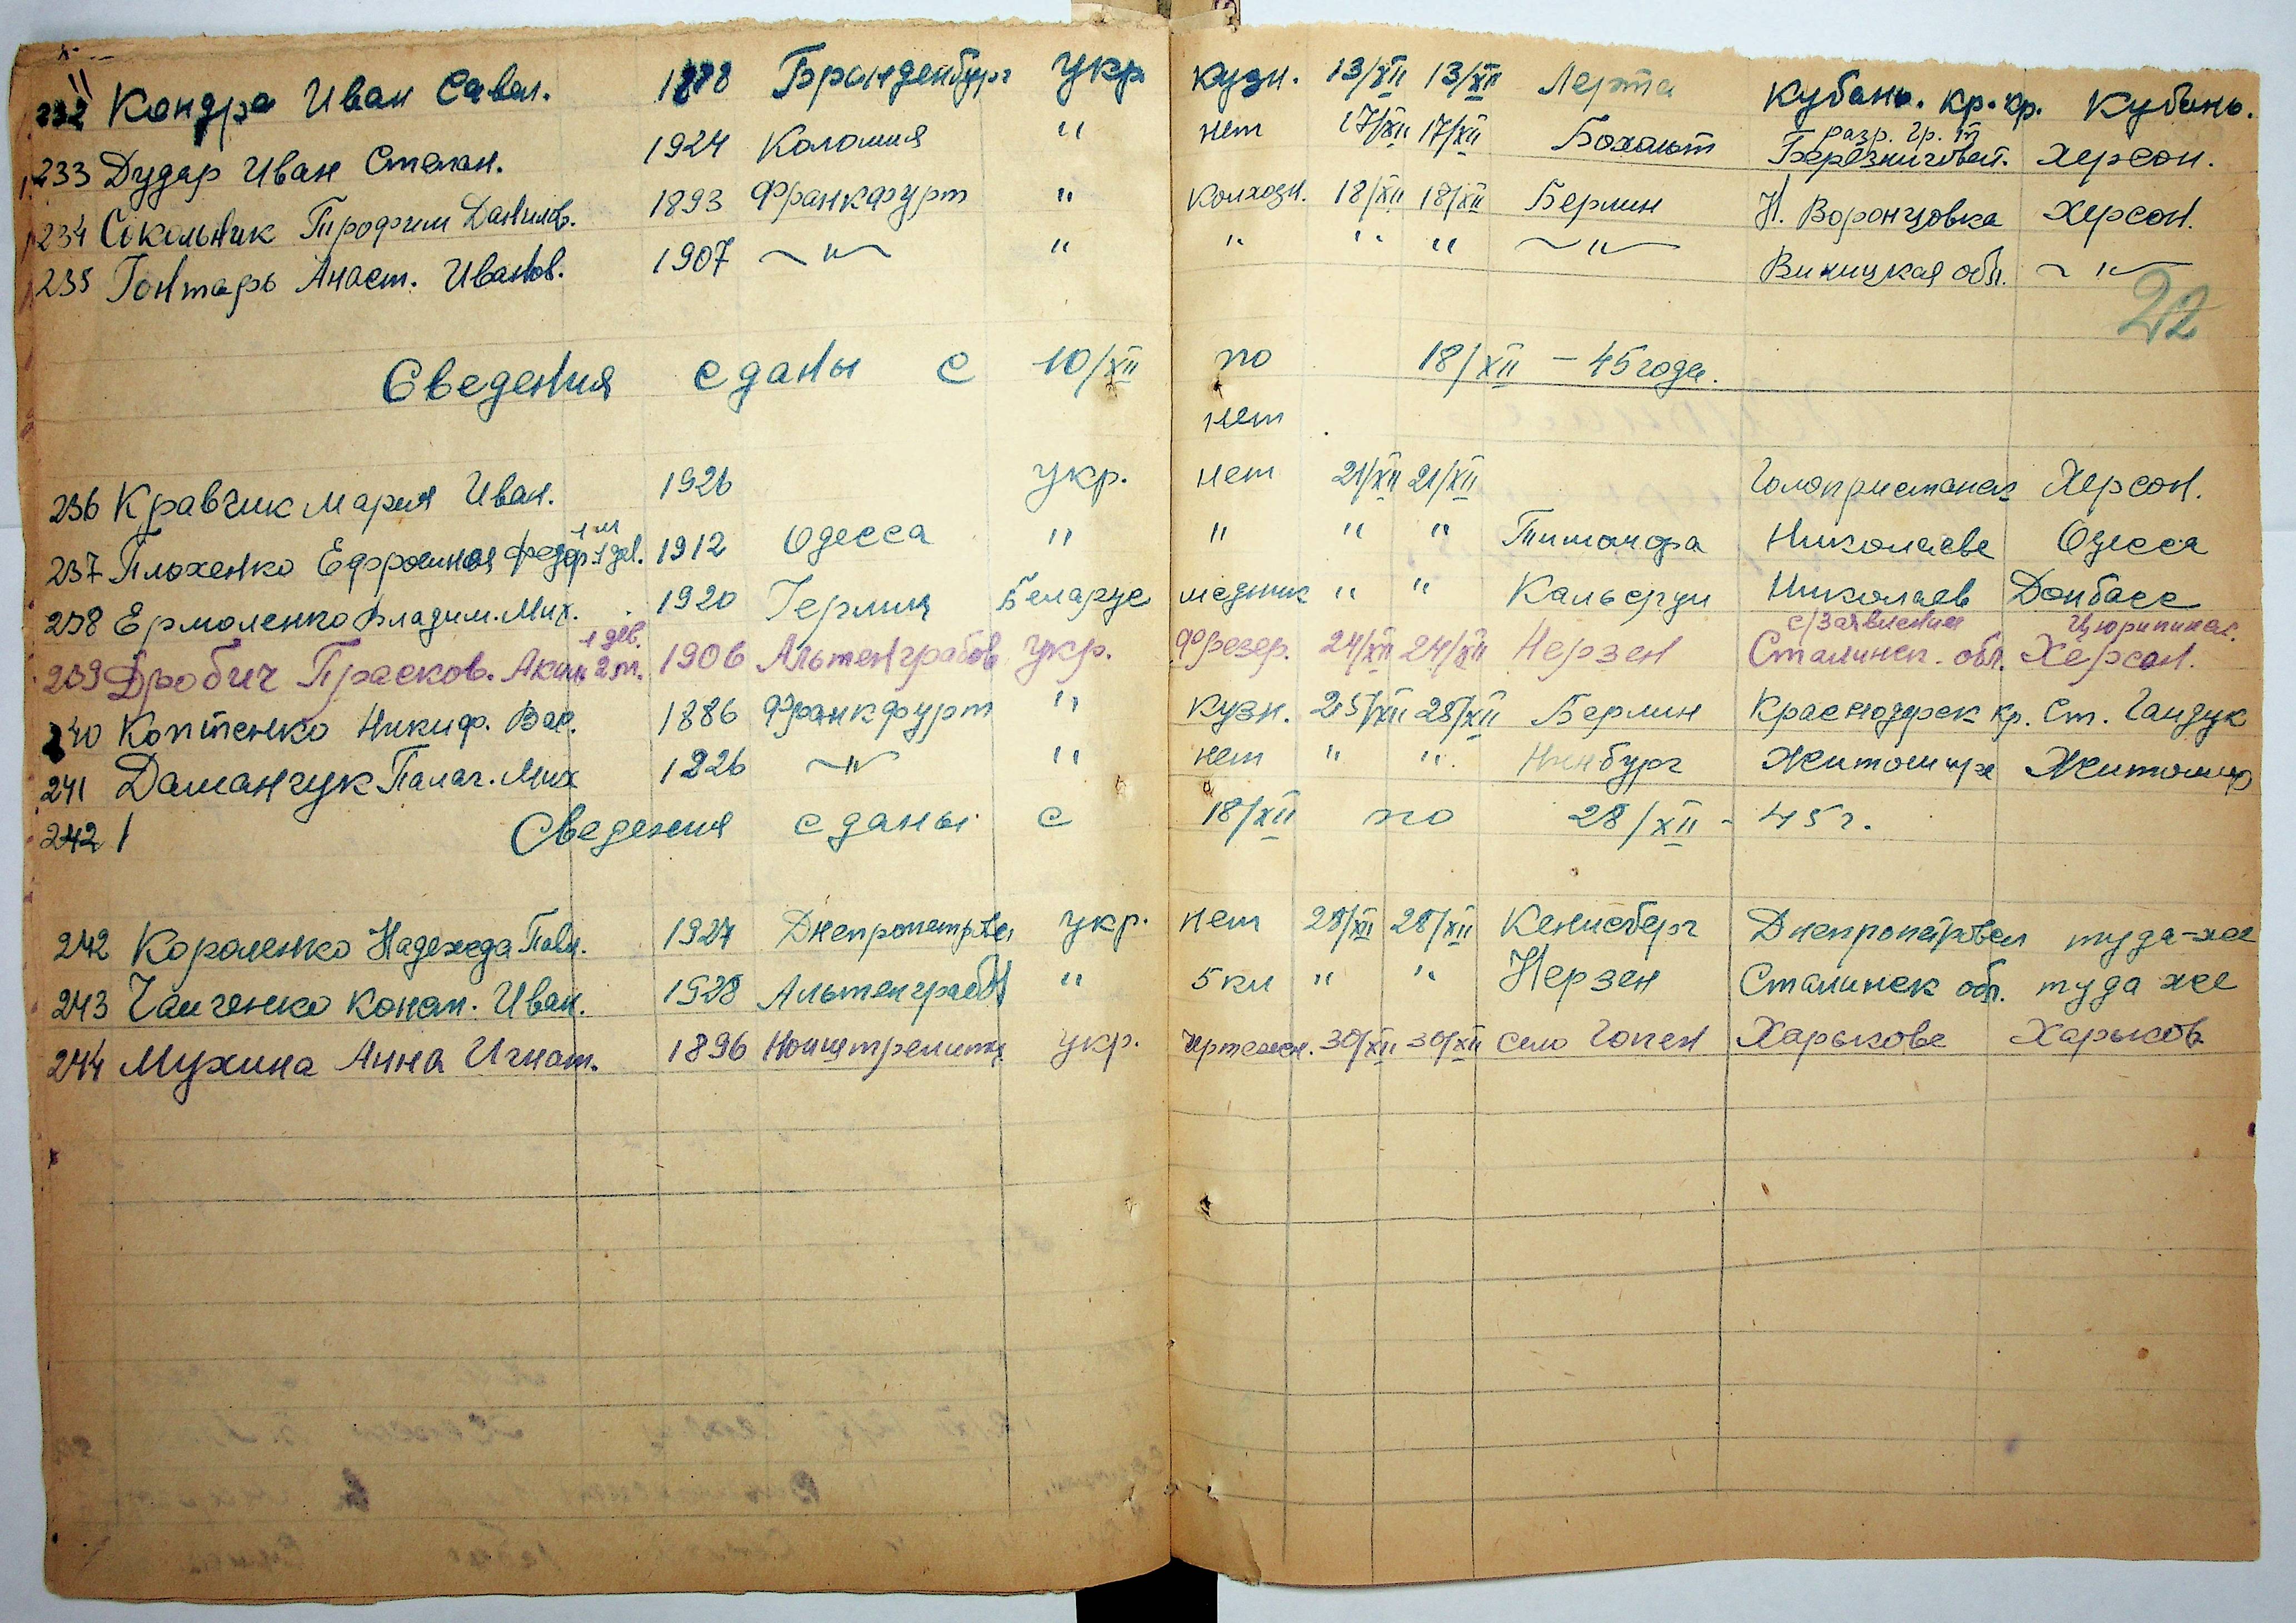 232 Кондра Иван Савел. 1888 Бранденбург укр кузн. 13/XII 13/XII Лерта Кубань. кр. кр. Кубань.
разр. гр. III
233 Дудар Иван Степан. 1924 Коломия " нет 17/XII 17/XII Бохольт Березниговат. Херсон.
234 Сокольник Трофим Данилов. 1893 Франкфурт " колхозн. 18/XII 18/XII Берлин Н. Воронцовка Херсон.
235 Гонтарь Анаст. Иванов. 1907 ~"~ " " " " ~"~ Виницкая обл. ~"~
22
Сведения сданы с 10/XII по 18/XII - 45 года.
нет
236 Кравчик Мария Иван. 1926 укр. нет 21/XII 21/XII Голопристанск Херсон.
1 м
237 Плохенко Ефросиния Федор. 1 дев. 1912 Одесса " " " " Николаеве Одесса
238 Ермоленко Владим. Мих. 1920 Герлиц Беларус медник " " Николаев Донбасс
1 дев. с/заявления Цюрипинск.
239 Дробич Прасков. Аким 2 м. 1906 Альтенграбов укр. Фрезер. 24/XII 24/XII Нерзен Сталинск. обл. Херсон.
240 Коптенко Никиф. Вас. 1886 Франкфурт " кузн. 25/XII 25/XII Берлин Краснодарск кр. ст. Гандук
241 Даманчук Палаг. Мих 1926 ~"~ " нет " " Нинбург Житомире Житомир
242 / Сведения сданы с 18/XII по 28/XII - 45 г.
242 Короленко Надежда Павл. 1927 укр. нет 28/XII 28/XII Кенисберг Днепропетровск туда-же
243 Ганченко Конст. Иван. 1928 Альтенграбов " 5 кл " " Нерзен Сталинск обл. туда же
244 Мухина Анна Игнат. 1896 Ноиштрелитц укр. чертежн. 30/XII 30/XII село Гопен Харькове Харьков